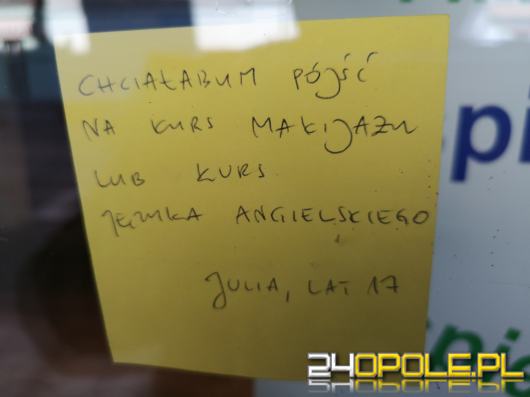 CHCIAŁABYM PÓJŚĆ
NA KURS MAKIJAŻU
LUB KURS
JĘZYKA ANGIELSKIEGO
JULIA, LAT 17
pi
pi
24OPOLE.PL